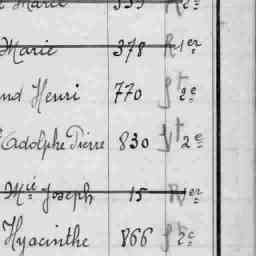 Marie 378 R 1er
nd Henri 770 St 2e
Adolphe Pierre 830 Vt 2e
Mie Joseph 15 R er
Hyacinthe 866 St 2e